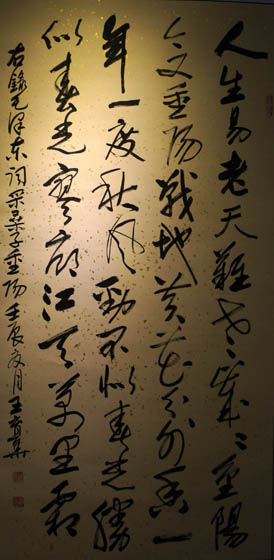 人生易老天難老歲〻重陽
今又重陽戰地黄花分外香一
年一度秋風勁不似春光勝
似春光寥廓江天萬里霜
右錄毛澤東詞采桑子重陽壬辰夏月王